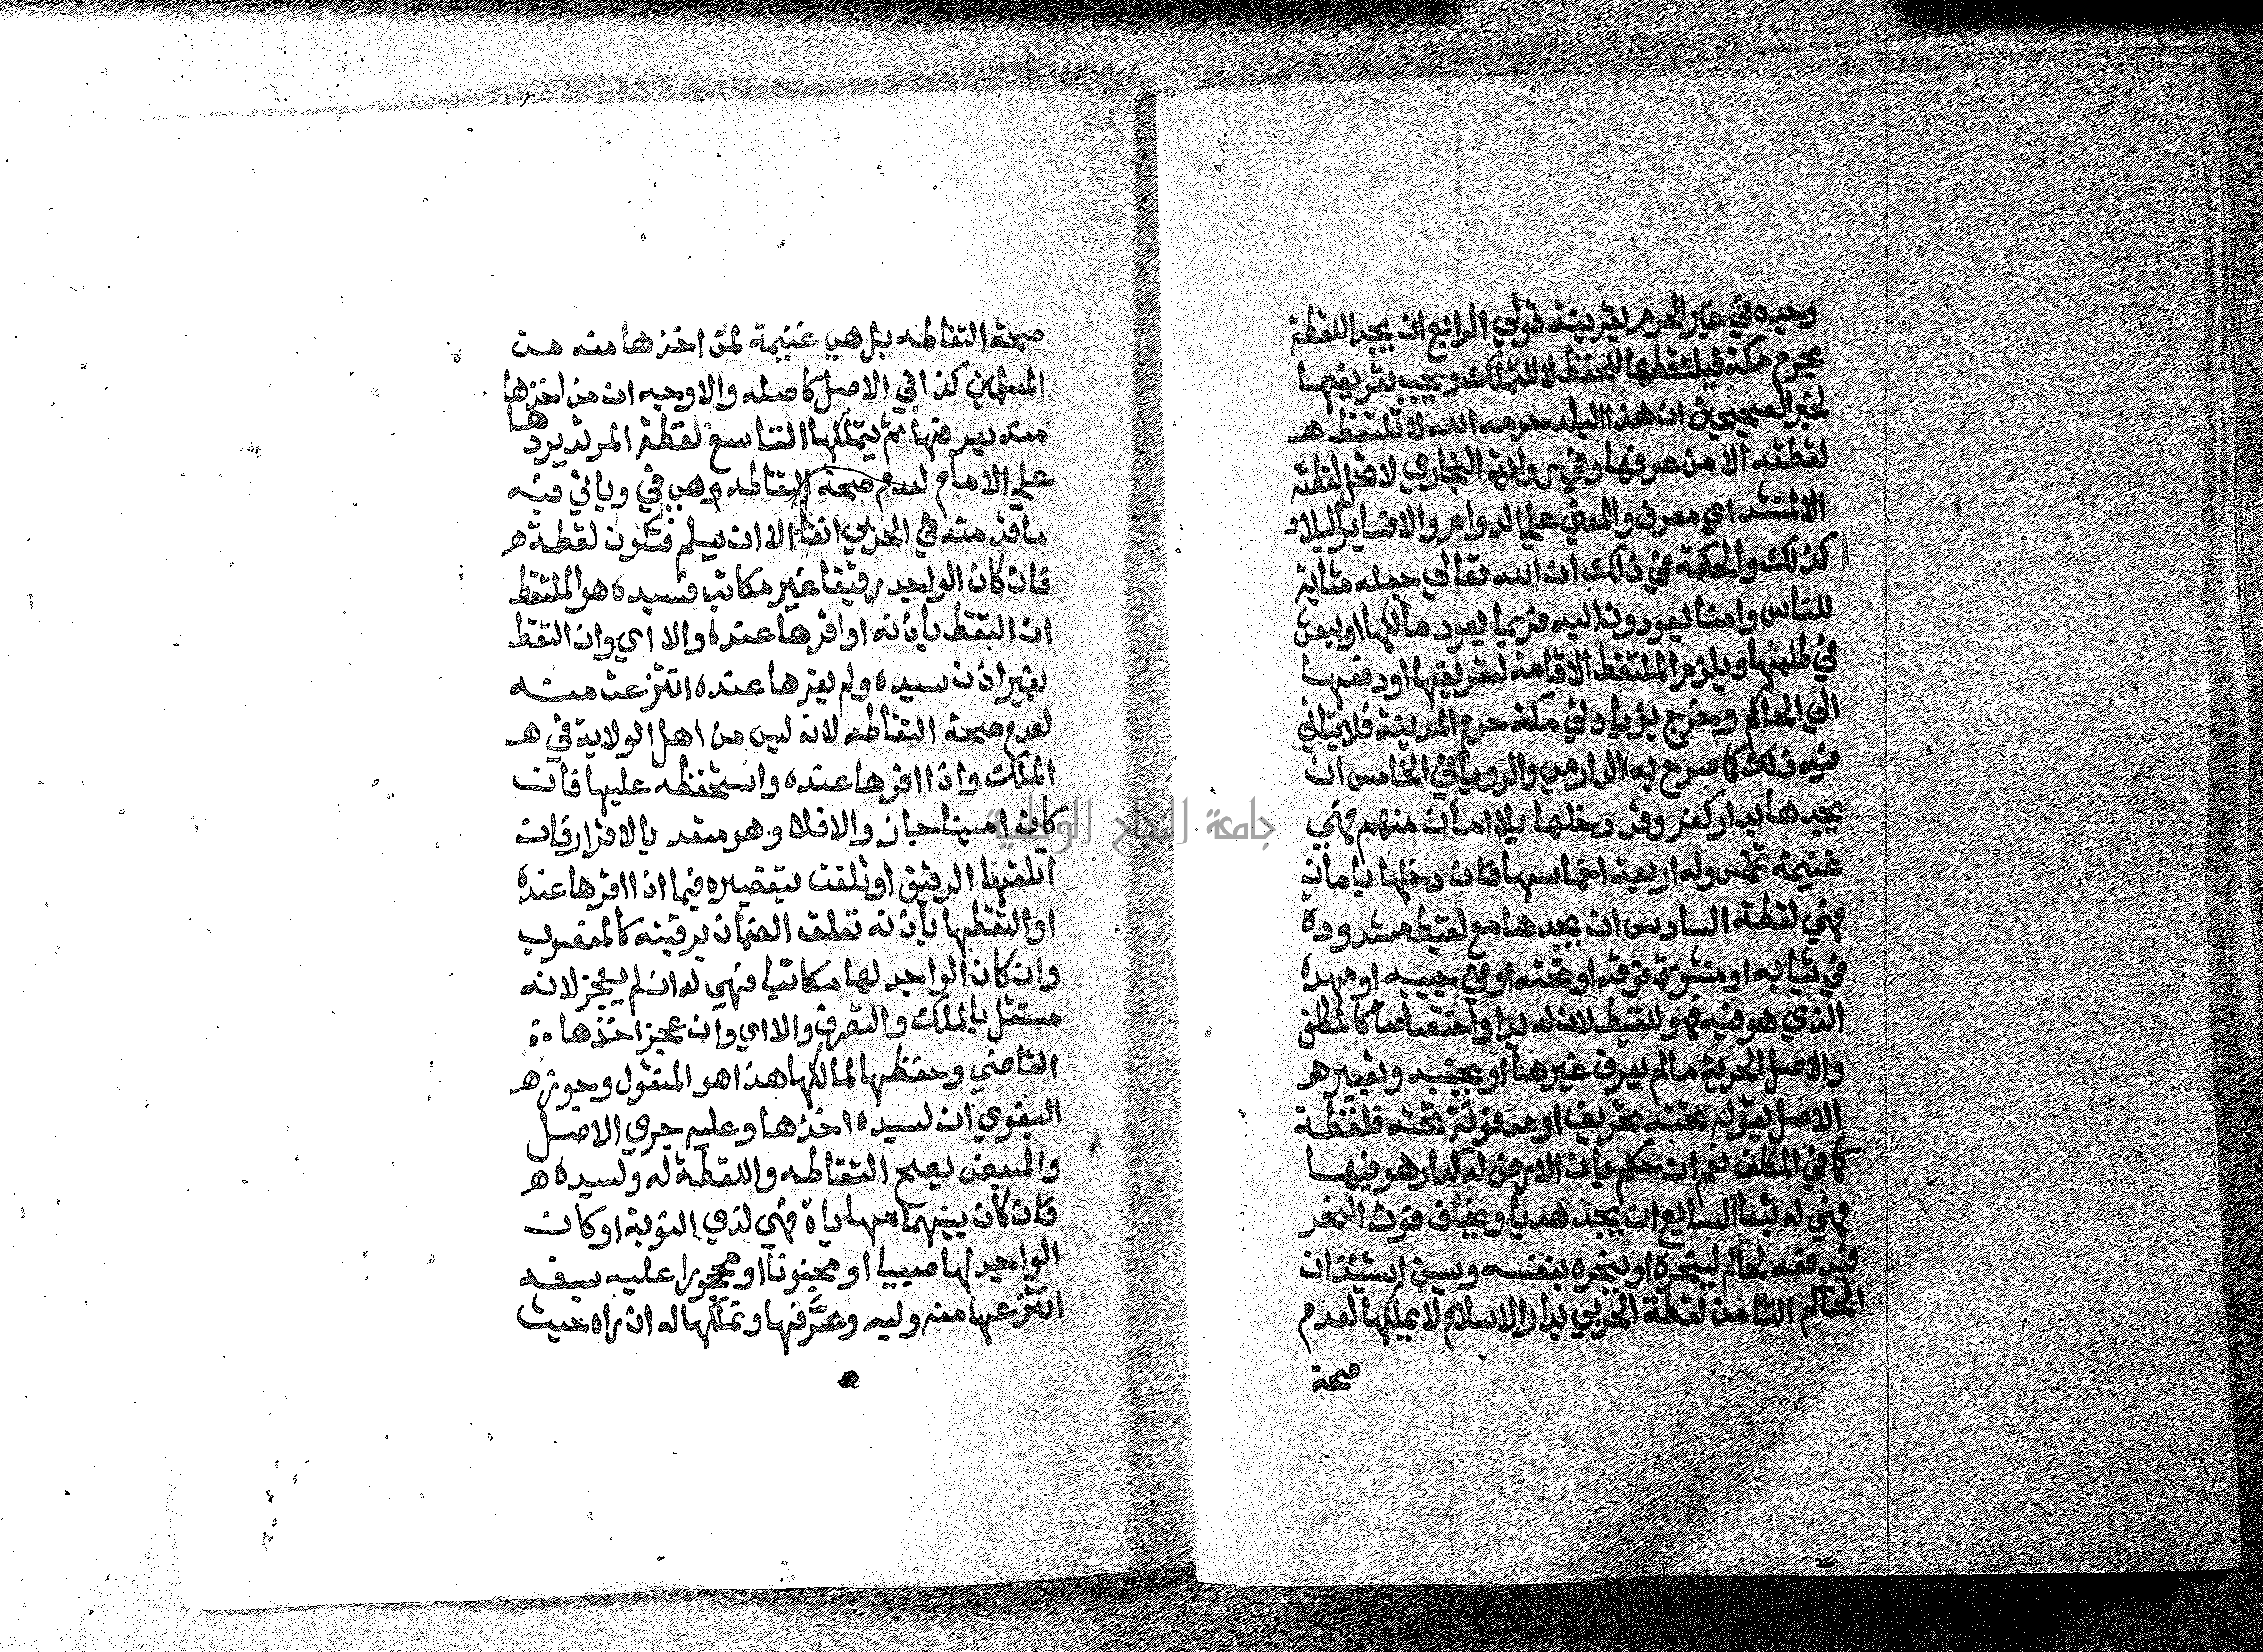 وحيده في غير الحرم بقرينة قولي الرابع ان يجد اللقطة
بحرم مكة فيلتقطها للحفظ لا للتملك ويجب تعريفها
لخبر الصحيحين ان هذا البلد حرمه الله لا تلتقط هـ
لقطته الا من عرفها وفي رواية البخاري لا تحل لقطته
الا لمنشد اي معرف والمعني علي الدوام والا فساير البلاد
كذلك والحكمة في ذلك ان الله تعالي جعله مثابة
للناس وامنا يعودون اليه فربما يعود مالكها او يبعث
في طلبها ويلزم الملتقط الاقامة لتعريفها او دفعها
الي الحاكم وخرج بزيادتي مكة حرم المدينة فلا ياتي
فيه ذلك كما صرح به الدارمي والروياني الخامس ان
يجدها بدار كفر وقد دخلها بلا امان منهم فهي
غنيمة تخمس وله اربعة اخماسها فان دخلها بامان
فهي لقطة السادس ان يجدها مع لقيط مشدودة
في ثيابه او منشورة فوقه او تحته او في جيبه او مهده
الذي هو فيه فهو للقيط لان له يدا واختصاصا كالمكلف
والاصل الحرية ما لم يعرف غيرها او بجنبه وتعبير هـ
الاصل بقوله تحته تحريف او مدفونة تحته فلقطة
كما في المكلف نعم ان حكم بان الارض له كدار هو فيها
فهي له تبعا السابع ان يجد هديا ويخاف فوت النحر
فيدفعه لحاكم لينحره او ينحره بنفسه ويسن استيذان
الحاكم الثامن لقطة الحربي بدار الاسلام لا يملكها لعدم
صحة
صحة التقاطه بل هي غنيمة لمن اخذها منه من
المسلمين كذا في الاصل كاصله والاوجه ان من اخذها
منه يعرفها ثم يتملكها التاسع لقطة المرتد يردها
علي الامام لعدم صحة التقاطه وهي في وياتي فيه
ما قدمته في الحربي انفا الا ان يسلم فتكون لقطة هـ
فان كان الواجد رقيقا غير مكاتب فسيده هو الملتقط
ان التقط باذنه او اقرها عنده والا اي وان التقط
بغير اذن سيده ولم يقرها عنده انتزعت منه
لعدم صحة التقاطه لانه ليس من اهل الولاية في هـ
الملك واذا اقرها عنده واستحفظه عليها فان
كان امينا جاز والا فلا وهو متعد بالاقرار فان
اتلفها الرقيق او تلفت بتقصيره فيما اذا اقرها عنده
او التقطها باذنه تعلق الضمان برقبته كالمغصوب
وان كان الواجد لها مكاتبا فهي له ان لم يعجز لانه
مستقل بالملك والتصرف والا اي وان عجز اخذها
القاضي وحفظها لمالكها هذا هو المنقول وجوز هـ
البغوي ان لسيده اخذها وعليه جري الاصل
والمبعض يصح التقاطه واللقطة له ولسيده هـ
فان كان بينهما مهاياة فهي لذي النوبة او كان
الواجد لها صبيا او مجنونا او محجورا عليه بسفه
انتزعها منه وليه وعرفها وتملكها له ان راه حيث
جامعة النجاح الوطنية